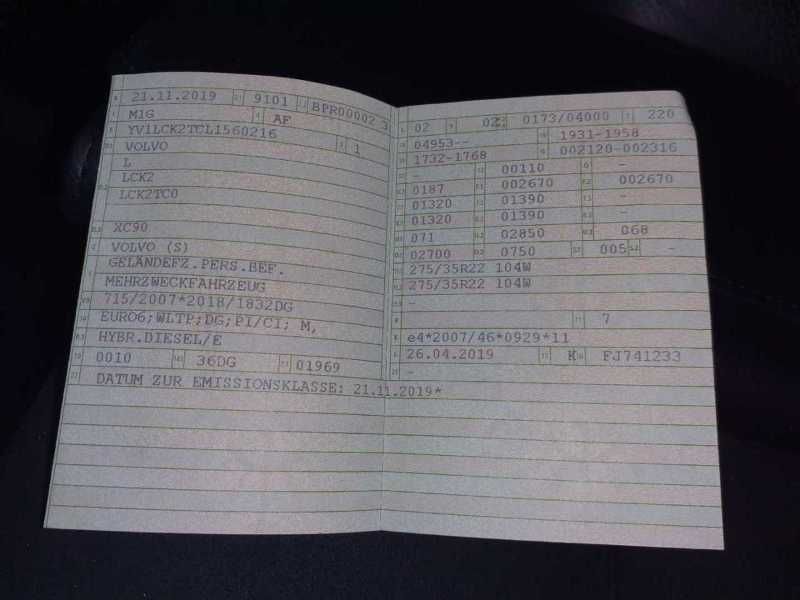 21.11.2019 9101 BPR00002 3
M1G AF
YV1LCK2TCL1560216
VOLVO 1
L
LCK2
LCK2TC0
XC90
VOLVO (S)
GELÄNDEFZ.PERS.BEF.
MEHRZWECKFAHRZEUG
715/2007*2018/1832DG
EURO6;WLTP;DG;PI/CI; M,
HYBR.DIESEL/E
0010 36DG 01969
DATUM ZUR EMISSIONSKLASSE: 21.11.2019*
02 0173/04000 220
04953-- 1931-1958
1732-1768 002120-002316
- 00110 -
0187 002670 002670
01320 01390 -
01320 01390 -
071 02850 068
02700 0750 005 -
275/35R22 104W
275/35R22 104W
-
7
e4*2007/46*0929*11
26.04.2019 K FJ741233
-